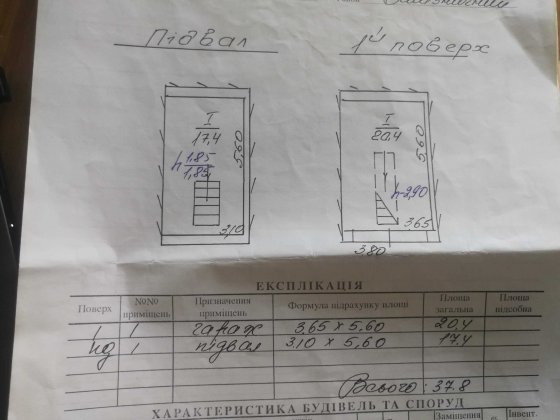 Підвал
1й поверх
I
17,4
5,60
h 1.85
1.85
3,10
I
20,4
5,60
h-2,90
3,65
3.80
ЕКСПЛІКАЦІЯ
Поверх
№№ приміщень
Призначення приміщень
Формула підрахунку площі
Площа загальна
Площа підсобна
1 1 гараж 3,65 x 5,60 20,4
пд 1 підвал 3,10 x 5,60 17,4
Всього: 37.8
ХАРАКТЕРИСТИКА БУДІВЕЛЬ ТА СПОРУД
Заміщення
Інвент.